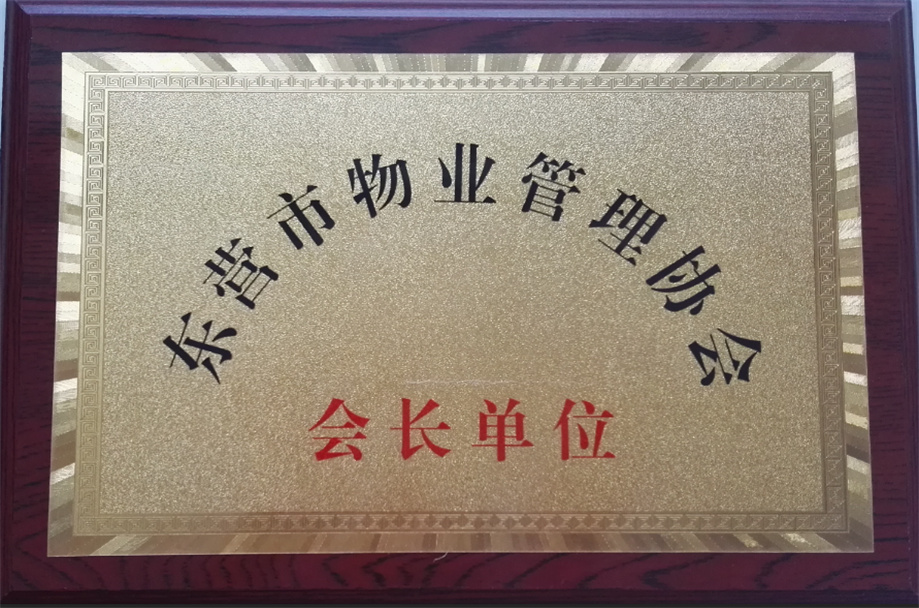 东营市物业管理协会
会长单位